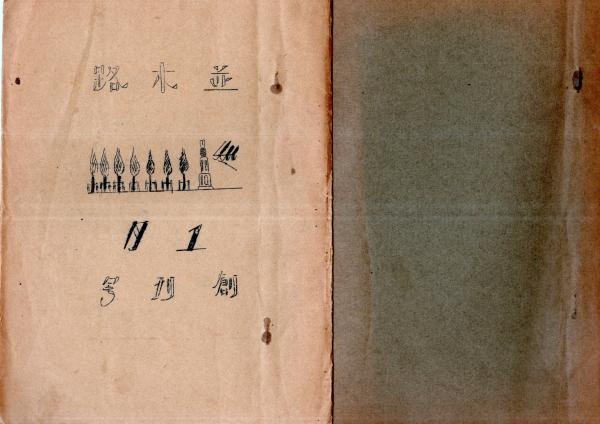 並木路
N 1
創刊号